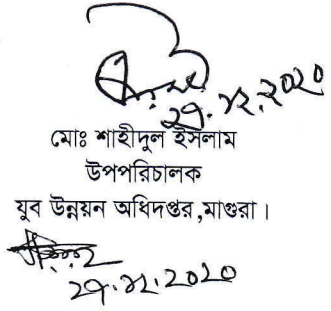 ২৭.১২.২০২০
মোঃ শাহীদুল ইসলাম
উপপরিচালক
যুব উন্নয়ন অধিদপ্তর,মাগুরা।
২৭.১২.২০২০